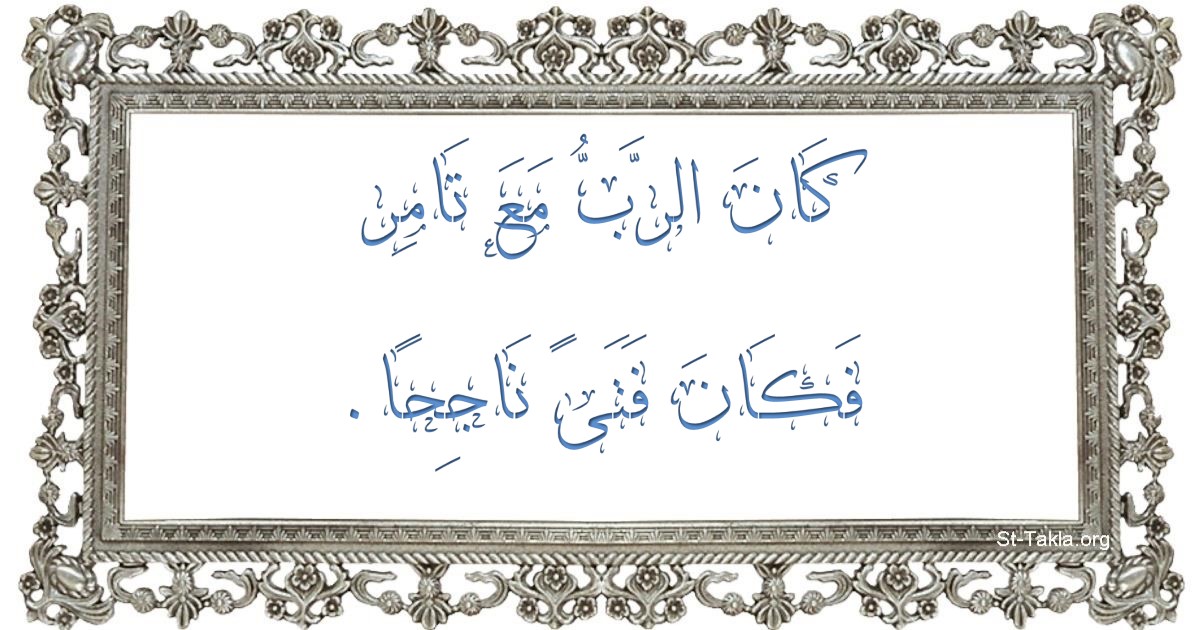 كَانَ الرَّبُّ مَعَ تَامِرِ
فَكَانَ فَتَىً نَاجِحًا .
St-Takla.org